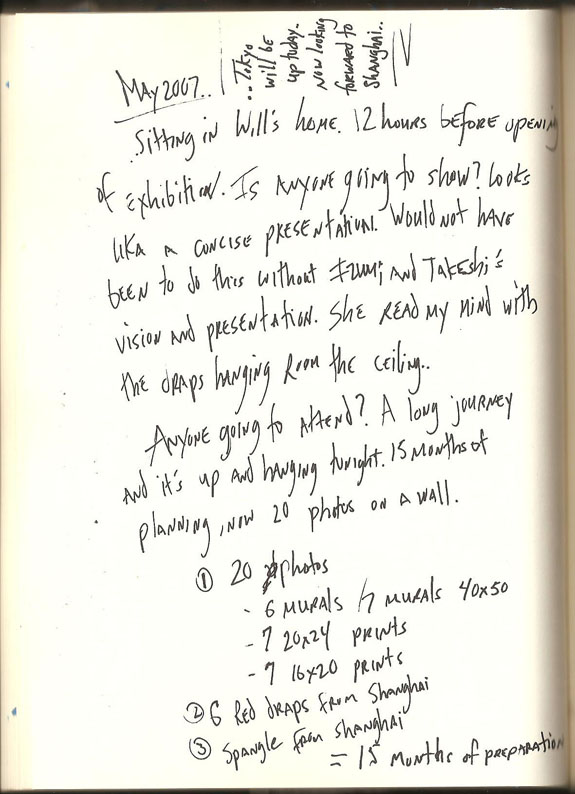 May 2007..
.. Tokyo
will be
up today..
Now looking
forward to
Shanghai..
Sitting in Will's home. 12 hours before opening
of exhibition. Is anyone going to show? Looks
lika a concise presentation. Would not have
been to do this without Izumi and Takeshi's
vision and presentation. She read my mind with
the draps hanging from the ceiling..
Anyone going to attend? A long journey
and it's up and hanging tonight. 15 months of
planning, now 20 photos on a wall.
① 20 photos
- 6 murals / 7 murals 40x50
- 7 20x24 prints
- 7 16x20 prints
② 6 Red draps from Shanghai
③ Spangle from Shanghai
= 15 months of preparation